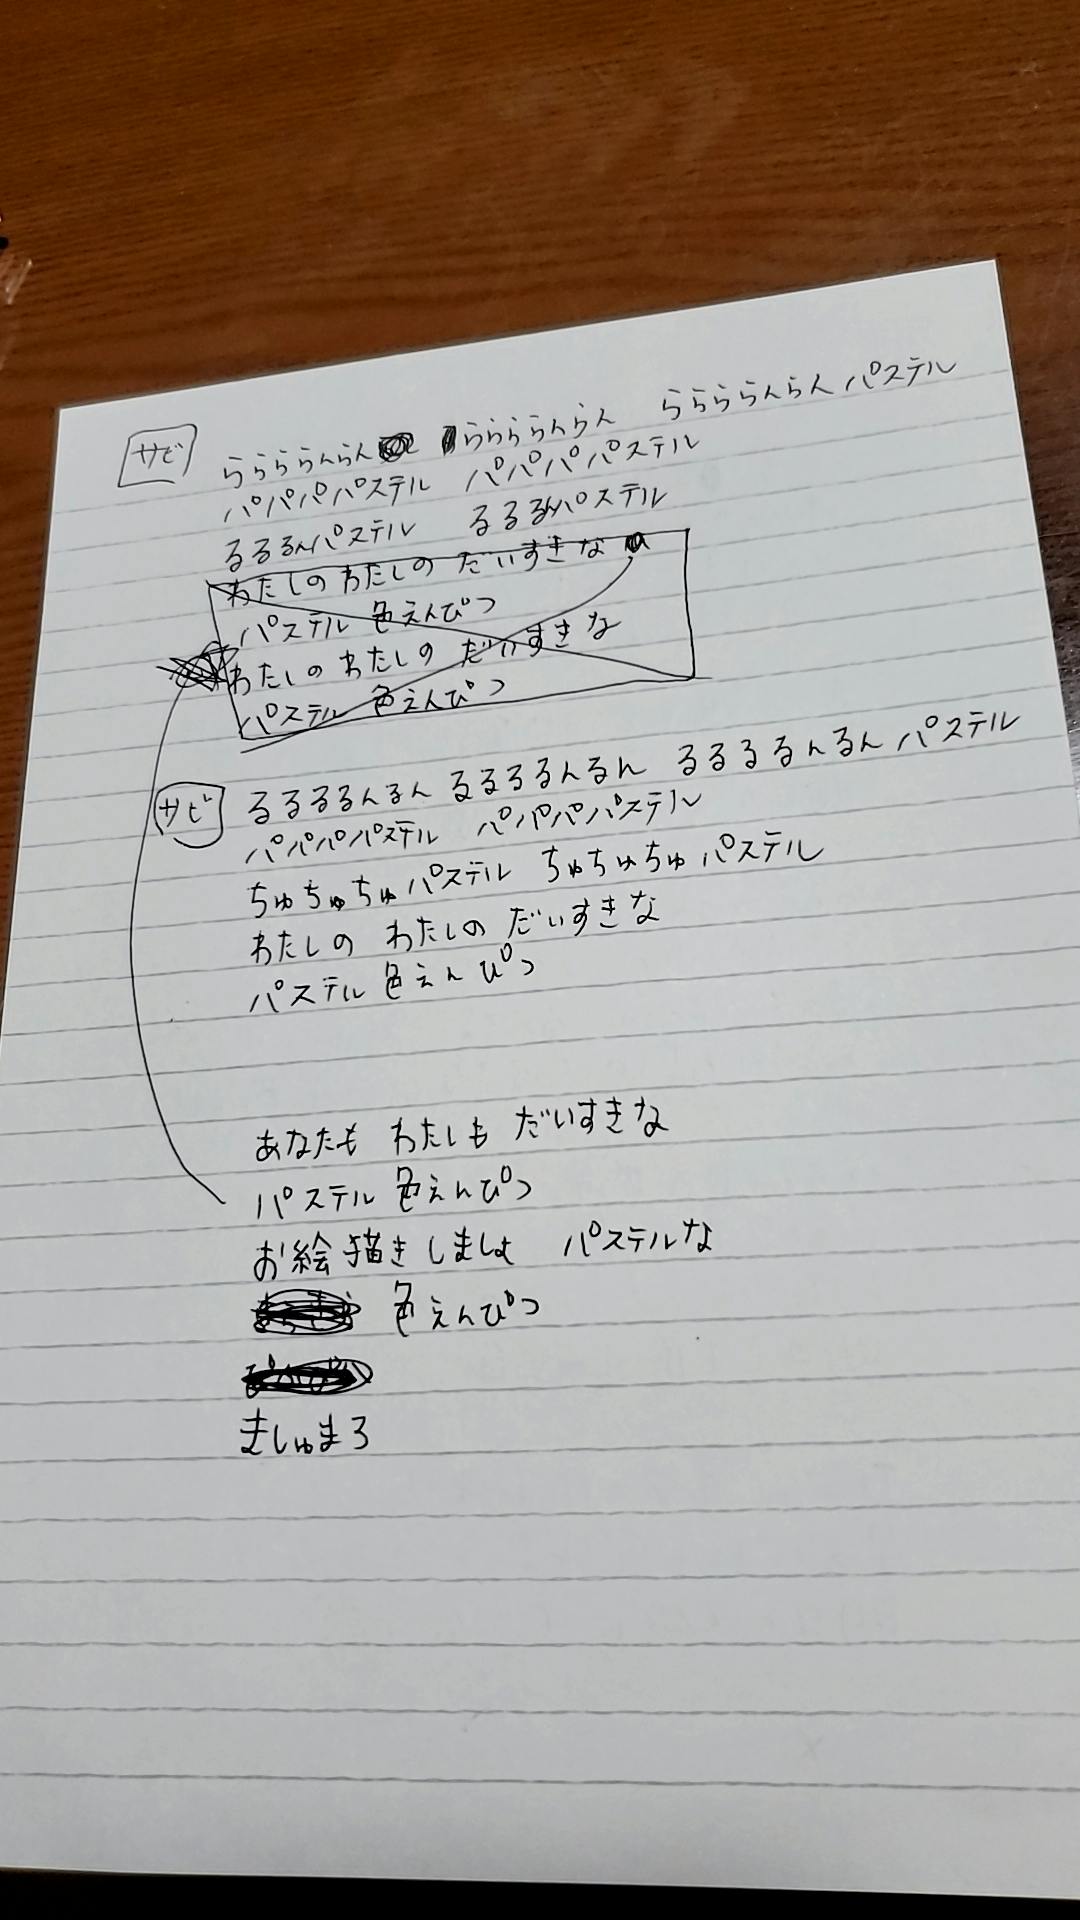 サビ ららららんらん ららららんらん ららららんらん パステル
パパパパステル パパパパステル
るるるんパステル るるるんパステル
わたしのわたしの だいすきな
パステル 色えんぴつ
わたしの わたしの だいすきな
パステル 色えんぴつ
サビ るるるるんるん るるるるんるん るるるるんるん パステル
パパパパステル パパパパステル
ちゅちゅちゅパステル ちゅちゅちゅパステル
わたしの わたしの だいすきな
パステル 色えんぴつ
あなたも わたしも だいすきな
パステル 色えんぴつ
お絵描きしましょ パステルな
色えんぴつ
ましゅまろ